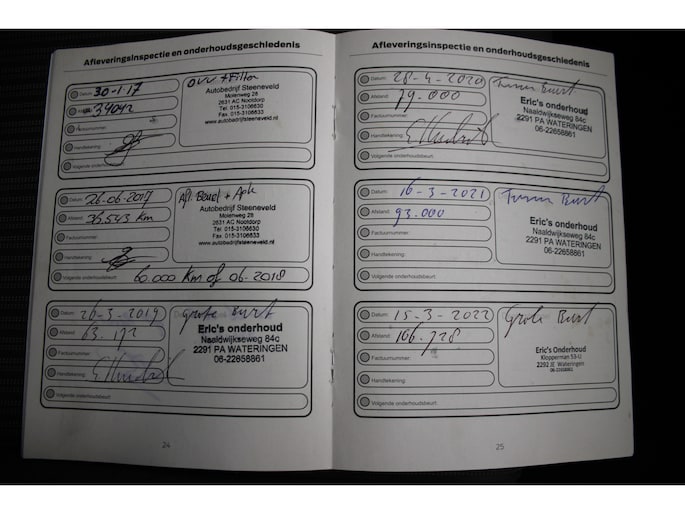 Afleveringsinspectie en onderhoudsgeschiedenis
Datum: 30-1-17
34042
Factuurnummer:
Handtekening:
Volgende onderhoudsbeurt:
Autobedrijf Steeneveld
Molenweg 28
2631 AC Nootdorp
Tel. 015-3106630
Fax. 015-3106633
www.autobedrijfsteeneveld.nl
Datum: 26-06-2017
Afstand: 36.543 km
Factuurnummer:
Handtekening:
Volgende onderhoudsbeurt: 60.000 km of 06-2018
Autobedrijf Steeneveld
Molenweg 28
2631 AC Nootdorp
Tel. 015-3106630
Fax. 015-3106633
www.autobedrijfsteeneveld.nl
Datum: 26-3-2019
Afstand: 63.172
Factuurnummer:
Handtekening:
Volgende onderhoudsbeurt:
Grote Burt
Eric's onderhoud
Naaldwijkseweg 84c
2291 PA WATERINGEN
06-22658861
24
Afleveringsinspectie en onderhoudsgeschiedenis
Datum: 28-4-2020
Afstand: 79.000
Factuurnummer:
Handtekening:
Volgende onderhoudsbeurt:
Burt
Eric's onderhoud
Naaldwijkseweg 84c
2291 PA WATERINGEN
06-22658861
Datum: 16-3-2021
Afstand: 93.000
Factuurnummer:
Handtekening:
Volgende onderhoudsbeurt:
Burt
Eric's onderhoud
Naaldwijkseweg 84c
2291 PA WATERINGEN
06-22658861
Datum: 15-3-2022
Afstand: 106.728
Factuurnummer:
Handtekening:
Volgende onderhoudsbeurt:
Grote Burt
Eric's Onderhoud
Klopperman 53-U
2292 JE Wateringen
06-22658861
25